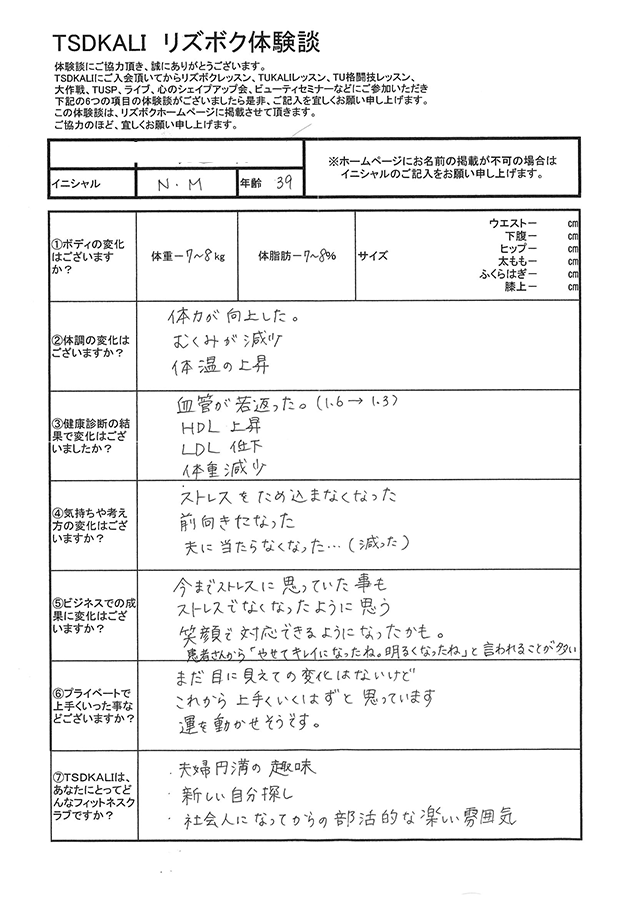 TSDKALI リズボク体験談
体験談にご協力頂き、誠にありがとうございます。
TSDKALIにご入会頂いてからリズボクレッスン、TUKALIレッスン、TU格闘技レッスン、
大作戦、TUSP、ライブ、心のシェイプアップ会、ビューティセミナーなどにご参加いただき
下記の6つの項目の体験談がございましたら是非、ご記入を宜しくお願い申し上げます。
この体験談は、リズボクホームページに掲載させて頂きます。
ご協力のほど、宜しくお願い申し上げます。
イニシャル N・M 年齢 39
※ホームページにお名前の掲載が不可の場合は
イニシャルのご記入をお願い申し上げます。
①ボディの変化
はございます
か?
体重ー7~8kg
体脂肪ー7~8%
サイズ
ウエストー cm
下腹ー cm
ヒップー cm
太ももー cm
ふくらはぎー cm
膝上ー cm
②体調の変化は
ございますか?
体力が向上した。
むくみが減少
体温の上昇
③健康診断の結
果で変化はござ
いましたか?
血管が若返った。(1.6→1.3)
HDL 上昇
LDL 低下
体重減少
④気持ちや考え
方の変化はござ
いますか?
ストレスをため込まなくなった
前向きになった
夫に当たらなくなった…(減った)
⑤ビジネスでの成
果に変化はござ
いますか?
今までストレスに思っていた事も
ストレスでなくなったように思う
笑顔で対応できるようになったかも。
患者さんから「やせてキレイになったね。明るくなったね」と言われることが多い
⑥プライベートで
上手くいった事な
どございますか?
まだ目に見えての変化はないけど
これから上手くいくはずと思っています
運を動かせそうです。
⑦TSDKALIは、
あなたにとってど
んなフィットネスク
ラブですか?
・夫婦円満の趣味
・新しい自分探し
・社会人になってからの部活的な楽しい雰囲気